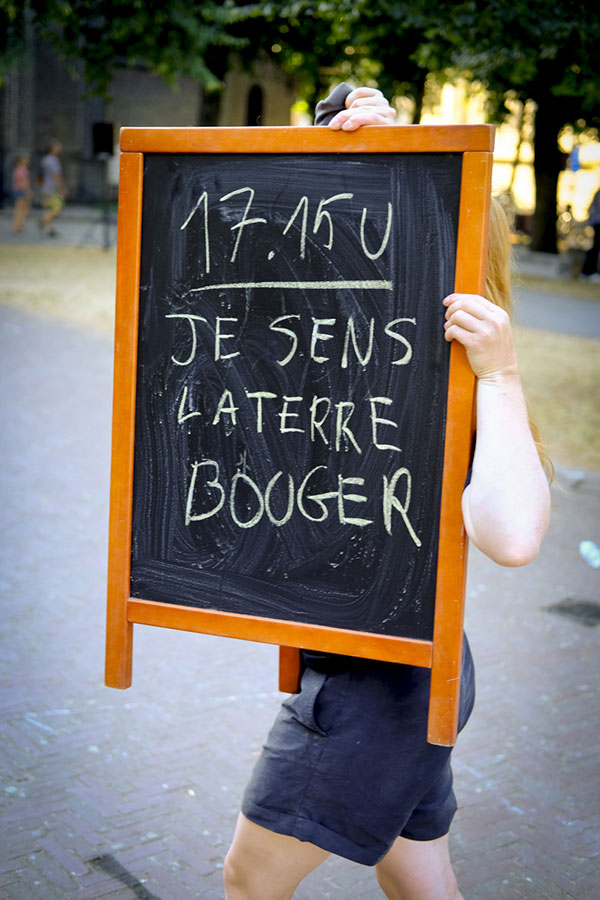 17.15U
JE SENS
LA TERRE
BOUGER